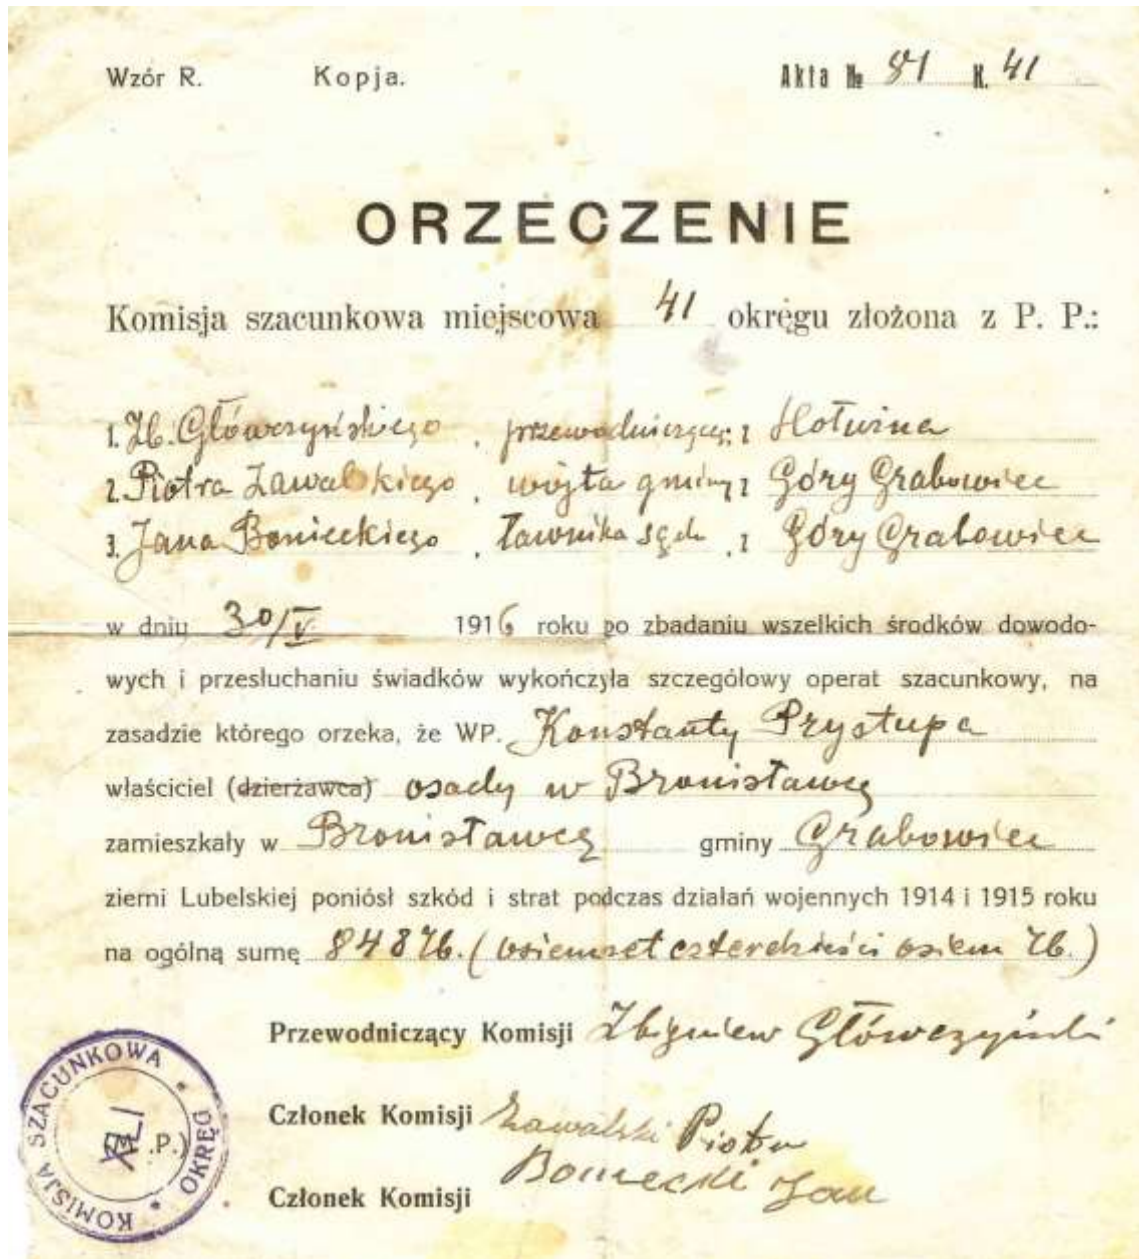 Wzór R. Kopja. Akta № 81 K. 41
ORZECZENIE
Komisja szacunkowa miejscowa 41 okręgu złożona z P. P.:
1. Zb. Główczyńskiego, przewodniczący; z
2. Piotra Zawalskiego, wójta gminy z Góry Grabowiec
3. Jana Bonieckiego, ławnika sądu, z Góry Grabowiec
w dniu 30/V 1916 roku po zbadaniu wszelkich środków dowodo-
wych i przesłuchaniu świadków wykończyła szczegółowy operat szacunkowy, na
zasadzie którego orzeka, że WP. Konstanty Prystupa
właściciel (dzierżawca) osady w Bronisławcę
zamieszkały w Bronisławcę gminy Grabowiec
ziemi Lubelskiej poniósł szkód i strat podczas działań wojennych 1914 i 1915 roku
na ogólną sumę 848 rb. (osiemset czterdzieści osiem rb.)
Przewodniczący Komisji Zbigniew Główczyński
Członek Komisji Zawalski Piotr
Członek Komisji Boniecki Jan
KOMISJA SZACUNKOWA • OKRĘG •
XLI
(M.P.)